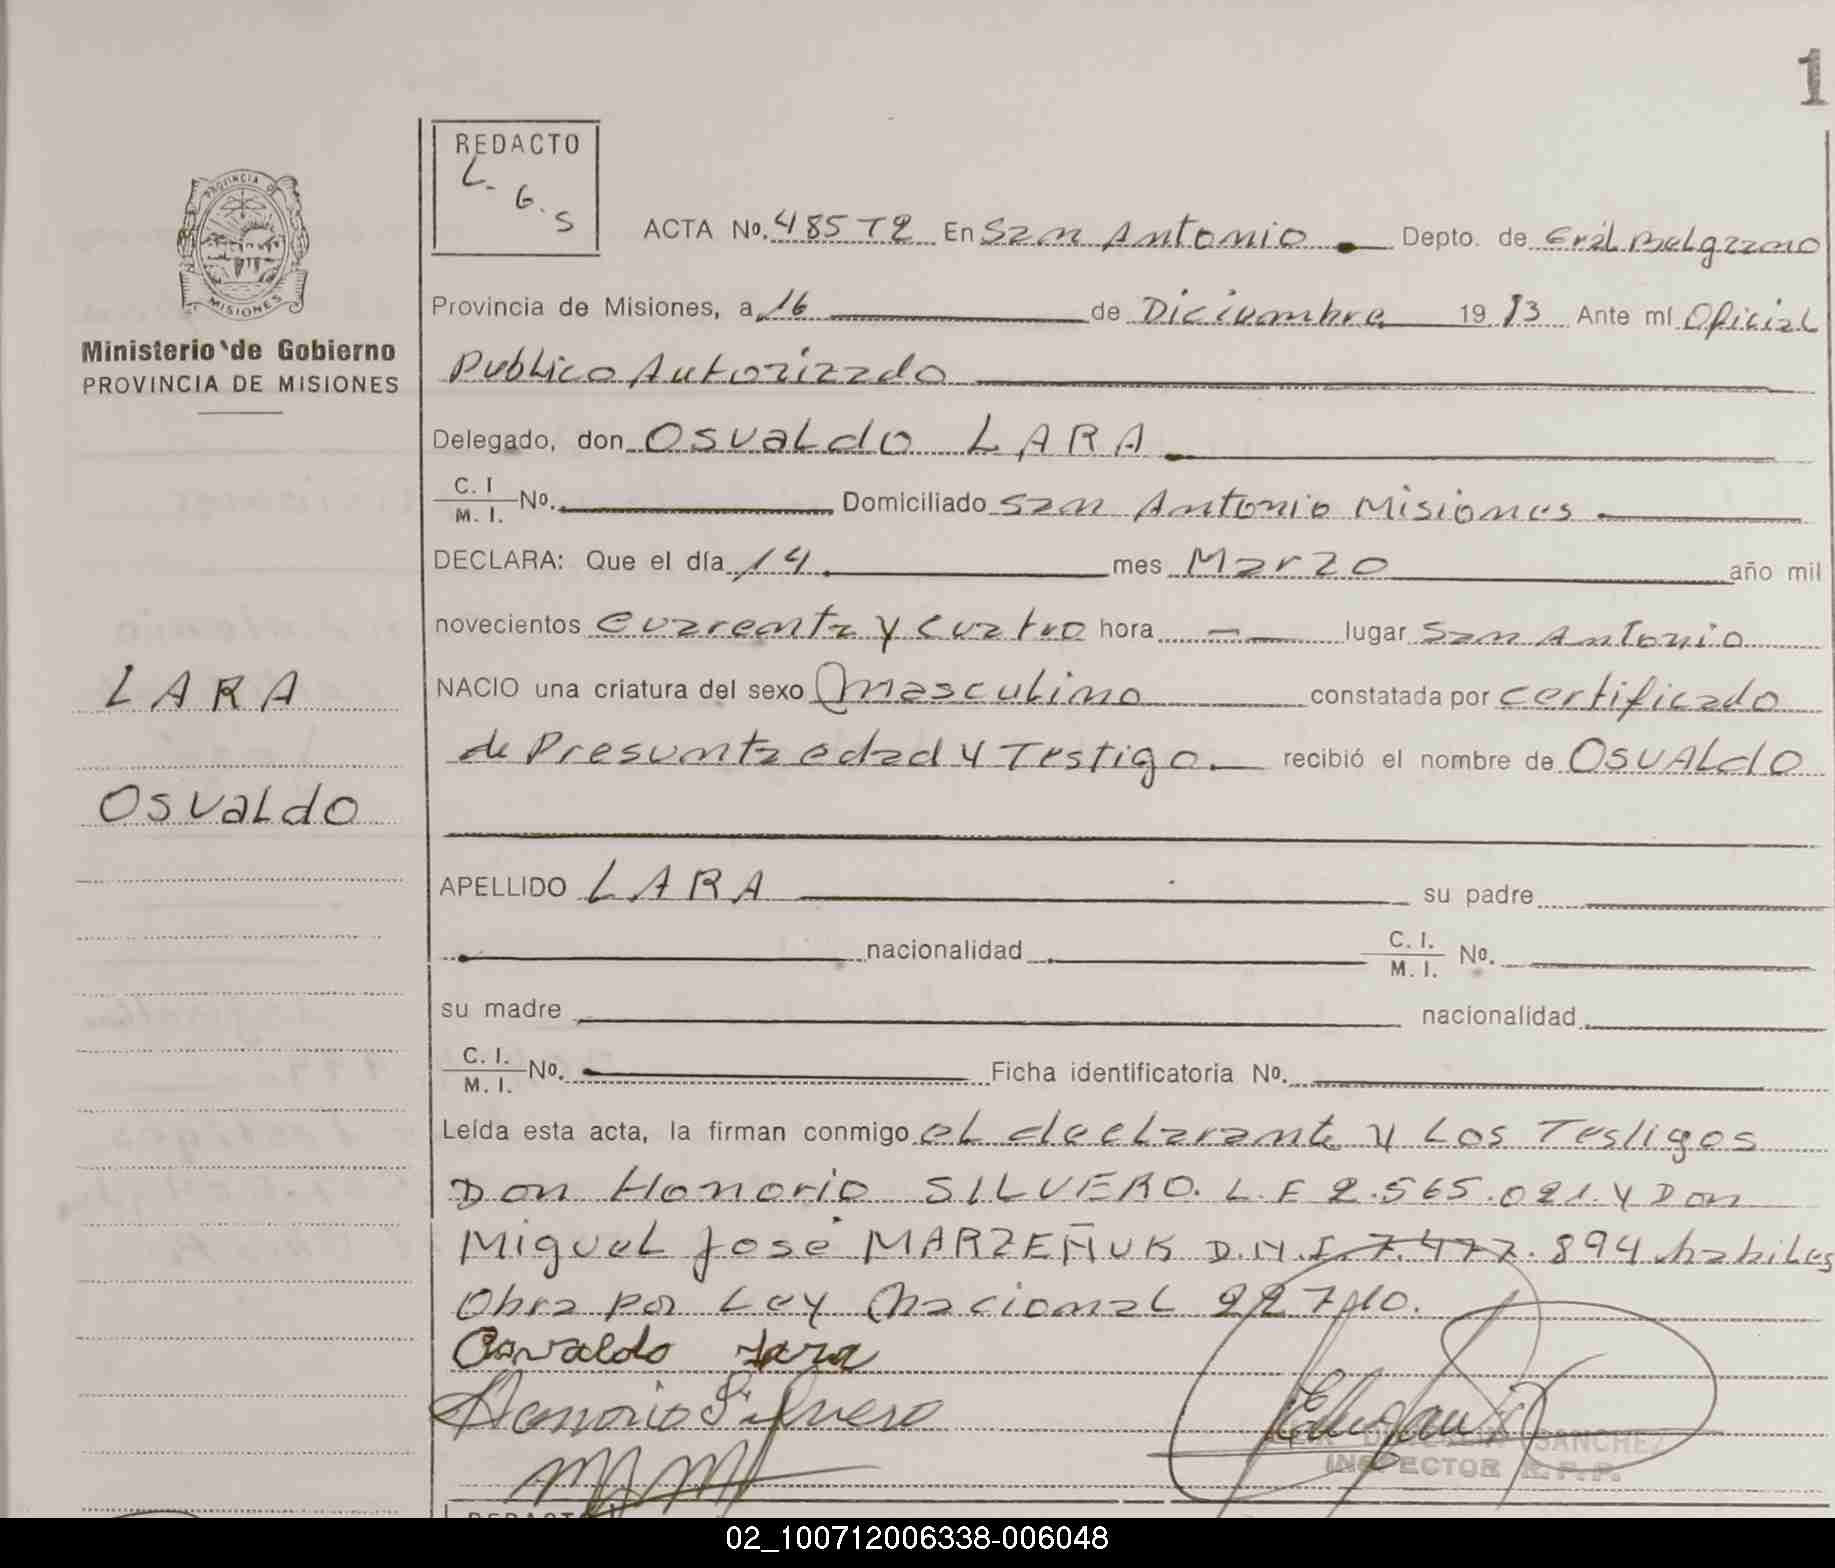 1
REDACTO
L. G. S
ACTA No. 48572 En San Antonio Depto. de Gral Belgrano
Provincia de Misiones, a 16 de Diciembre 1983 Ante mí Oficial
Publico Autorizado
Delegado, don Osvaldo LARA
C. I
M. I. No. Domiciliado San Antonio Misiones
DECLARA: Que el día 14 mes Marzo año mil
novecientos cuarenta y cuatro hora — lugar San Antonio
NACIO una criatura del sexo masculino constatada por certificado
de Presunta edad y Testigo. recibió el nombre de OSVALdO
APELLIDO LARA su padre
nacionalidad C. I.
M. I. No.
su madre nacionalidad
C. I.
M. I. No. Ficha identificatoria No.
Leída esta acta, la firman conmigo el declarante y Los Testigos
Don Honorio SILVERO. L.E 2.565.021. Y Don
Miguel José MARZEÑUK D.N.I. 7.477.894 habiles
Obra por Ley Nacional 22710.
Osvaldo Lara
Honorio Silvero
SANCHEZ
INSPECTOR R.P.P.
PROVINCIA DE
MISIONES
Ministerio de Gobierno
PROVINCIA DE MISIONES
LARA
Osvaldo
REDACTO
02_100712006338-006048